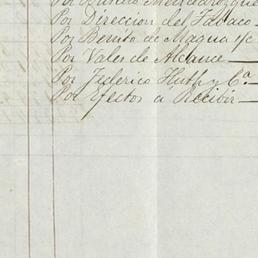 Por Direccion del Tabaco
Por Benito de Maqua s/c
Por Vales de Alcance
Por Federico Huth y Cª
Por Efectos a Recibir